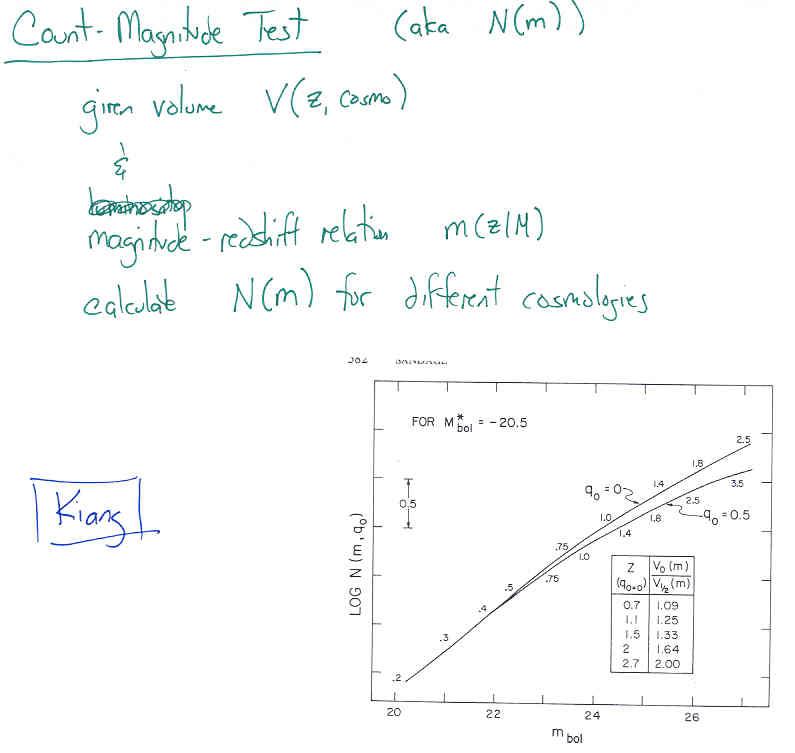 Count-Magnitude Test (aka N(m))
given volume V(z, cosmo)
&
magnitude-redshift relation m(z|M)
calculate N(m) for different cosmologies
Kiang
FOR M*bol = -20.5
0.5
LOG N (m, q₀)
.2
.3
.4
.5
.75
1.0
1.4
1.8
2.5
q₀ = 0
.75
1.0
1.4
1.8
2.5
3.5
q₀ = 0.5
Z (q₀=0) V₀(m)/V½(m)
0.7 1.09
1.1 1.25
1.5 1.33
2 1.64
2.7 2.00
20 22 24 26
m bol